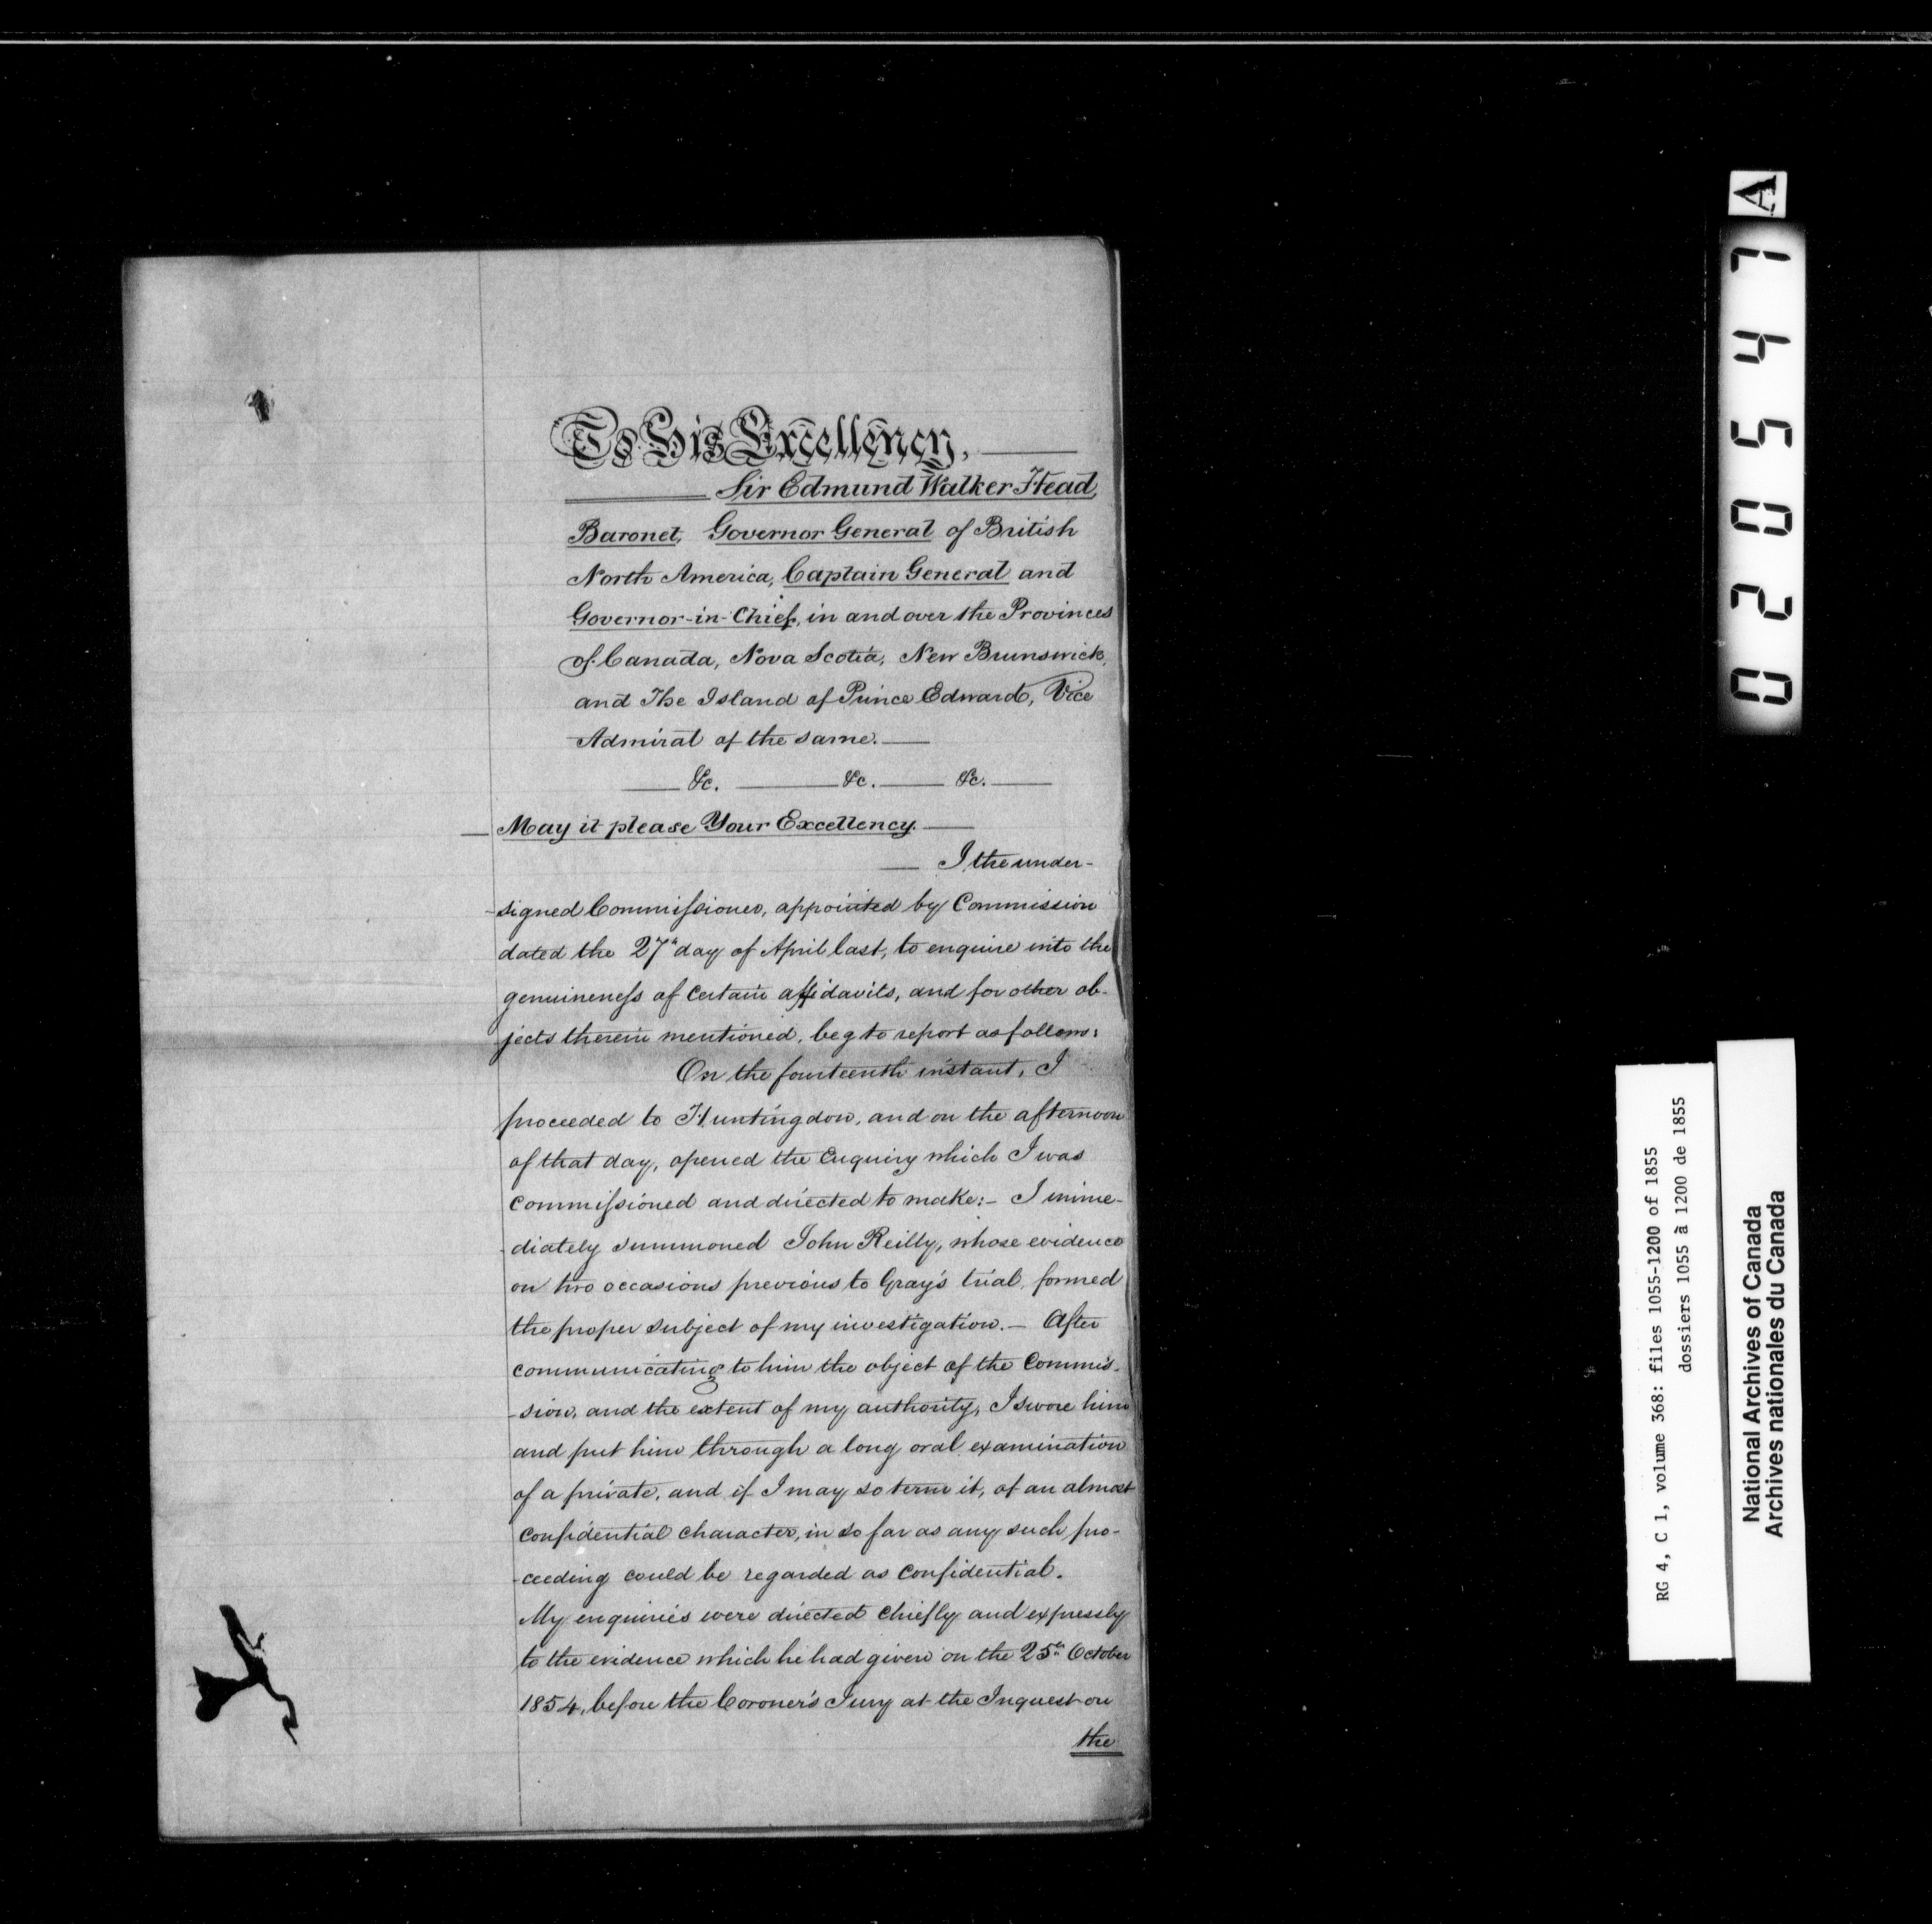 To His Excellency,
Sir Edmund Walker Head,
Baronet, Governor General of British
North America, Captain General and
Governor-in-Chief, in and over the Provinces
of Canada, Nova Scotia, New Brunswick,
and The Island of Prince Edward, Vice
Admiral of the same.
&c. &c. &c.
May it please Your Excellency.
I, the under-
signed Commissioner, appointed by Commission
dated the 27th day of April last, to enquire into the
genuineness of certain affidavits, and for other ob-
jects therein mentioned, beg to report as follows:
On the fourteenth instant, I
proceeded to Huntingdon, and on the afternoon
of that day, opened the Enquiry which I was
commissioned and directed to make:- I imme-
-diately summoned John Reilly, whose evidence
on two occasions previous to Gray's trial, formed
the proper subject of my investigation.- After
communicating to him the object of the Commis-
-sion, and the extent of my authority, I swore him
and put him through a long oral examination
of a private, and if I may so term it, of an almost
confidential character, in so far as any such pro-
-ceeding could be regarded as confidential.
My enquiries were directed chiefly and expressly
to the evidence which he had given on the 25th October
1854, before the Coroner's Jury at the Inquest on
the
A
020547
RG 4, C 1, volume 368: files 1055-1200 of 1855
dossiers 1055 à 1200 de 1855
National Archives of Canada
Archives nationales du Canada